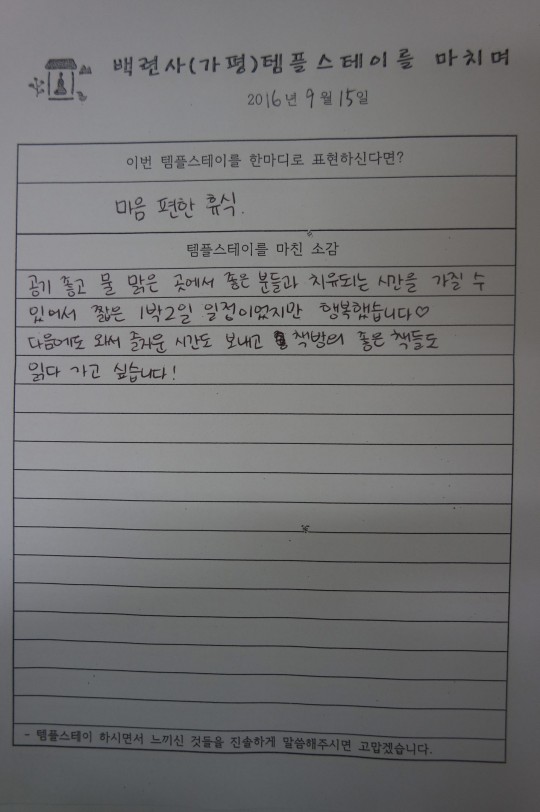 백련사(가평)템플스테이를 마치며
2016년 9월 15일
이번 템플스테이를 한마디로 표현하신다면?
마음 편한 휴식.
템플스테이를 마친 소감
공기 좋고 물 맑은 곳에서 좋은 분들과 치유되는 시간을 가질 수
있어서 짧은 1박2일 일정이었지만 행복했습니다♡
다음에도 와서 즐거운 시간도 보내고 책방의 좋은 책들도
읽다 가고 싶습니다!
- 템플스테이 하시면서 느끼신 것들을 진솔하게 말씀해주시면 고맙겠습니다.